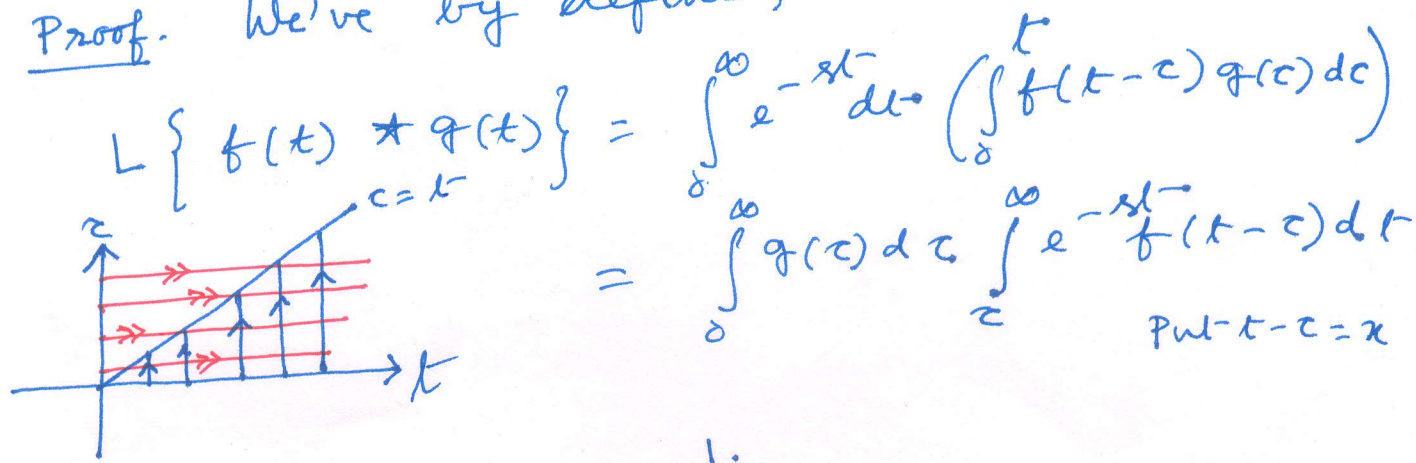 Proof. We've by
L{ f(t) * g(t)} = ∫₀^∞ e^{-st} dt (∫₀^t f(t-τ) g(τ) dτ)
τ = t
τ
= ∫₀^∞ g(τ) dτ ∫_τ^∞ e^{-st} f(t-τ) dt
t
Put t-τ = x